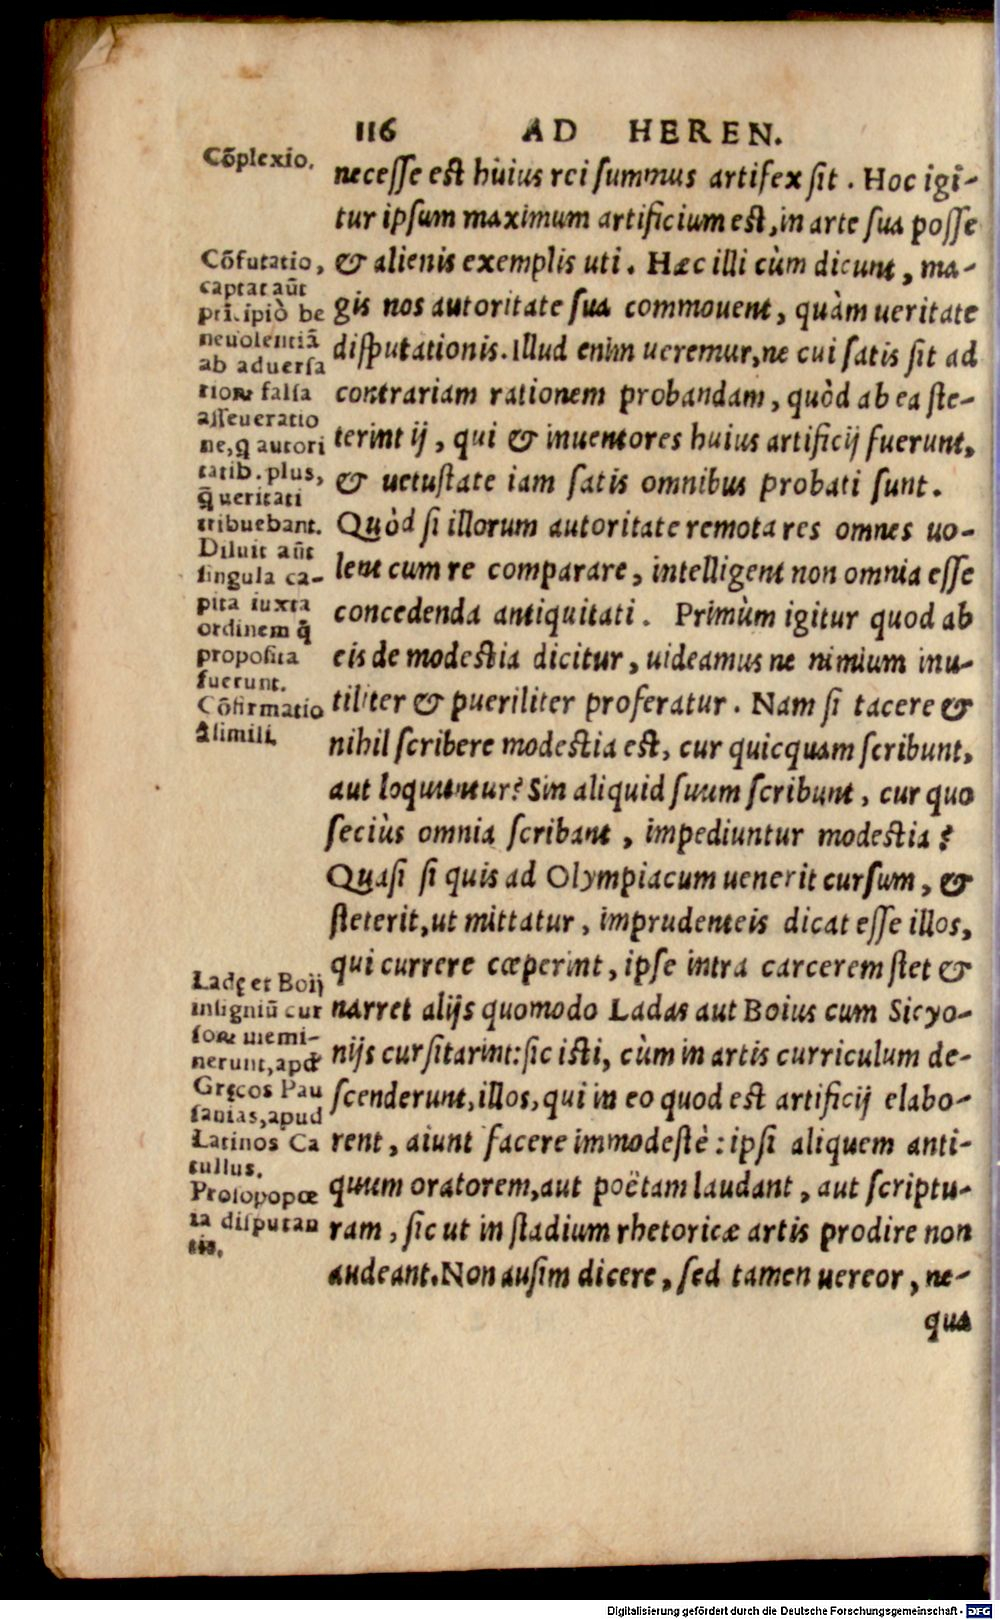 116 AD HEREN.
Cōplexio.
necesse est huius rei summus artifex sit. Hoc igi-
tur ipsum maximum artificium est, in arte sua posse
& alienis exemplis uti. Hæc illi cùm dicunt, ma-
gis nos autoritate sua commouent, quàm ueritate
disputationis. Illud enim ueremur, ne cui satis sit ad
contrariam rationem probandam, quòd ab ea ste-
terint ij, qui & inuentores huius artificij fuerunt,
& uetustate iam satis omnibus probati sunt.
Quòd si illorum autoritate remota res omnes uo-
lent cum re comparare, intelligent non omnia esse
concedenda antiquitati. Primùm igitur quod ab
eis de modestia dicitur, uideamus ne nimium inu-
tiliter & pueriliter proferatur. Nam si tacere &
nihil scribere modestia est, cur quicquam scribunt,
aut loquuntur? Sin aliquid suum scribunt, cur quo
seciùs omnia scribant, impediuntur modestia?
Quasi si quis ad Olympiacum uenerit cursum, &
steterit, ut mittatur, imprudenteis dicat esse illos,
qui currere cœperint, ipse intra carcerem stet &
narret alijs quomodo Ladas aut Boius cum Sicyo-
nijs cursitarint: sic isti, cùm in artis curriculum de-
scenderunt, illos, qui in eo quod est artificij elabo-
rent, aiunt facere immodestè: ipsi aliquem anti-
quum oratorem, aut poëtam laudant, aut scriptu-
ram, sic ut in stadium rhetoricæ artis prodire non
audeant. Non ausim dicere, sed tamen uereor, ne-
qua
Cōfutatio,
captat aūt
principiò be
neuolentiā
ab aduersa
riorū falsa
asseueratio
ne, q̃ autori
tatib. plus,
q̃ ueritati
tribuebant.
Diluit aūt
singula ca-
pita iuxta
ordinem q̃
proposita
fuerunt.
Cōfirmatio
à simili.
Ladę et Boij
insigniū cur
sorū memi-
nerunt, apđ
Gręcos Pau
sanias, apud
Latinos Ca
tullus.
Prosopopœ
ia disputan
tis.
Digitalisierung gefördert durch die Deutsche Forschungsgemeinschaft - DFG